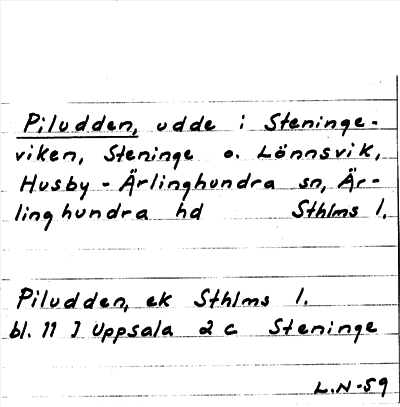 Piludden, udde i Steninge-
viken, Steninge o. Lönnsvik,
Husby-Ärlinghundra sn, Är-
linghundra hd Sthlms l.
Piludden, ek Sthlms l.
bl. 11 J Uppsala 2 c Steninge
L.N-59